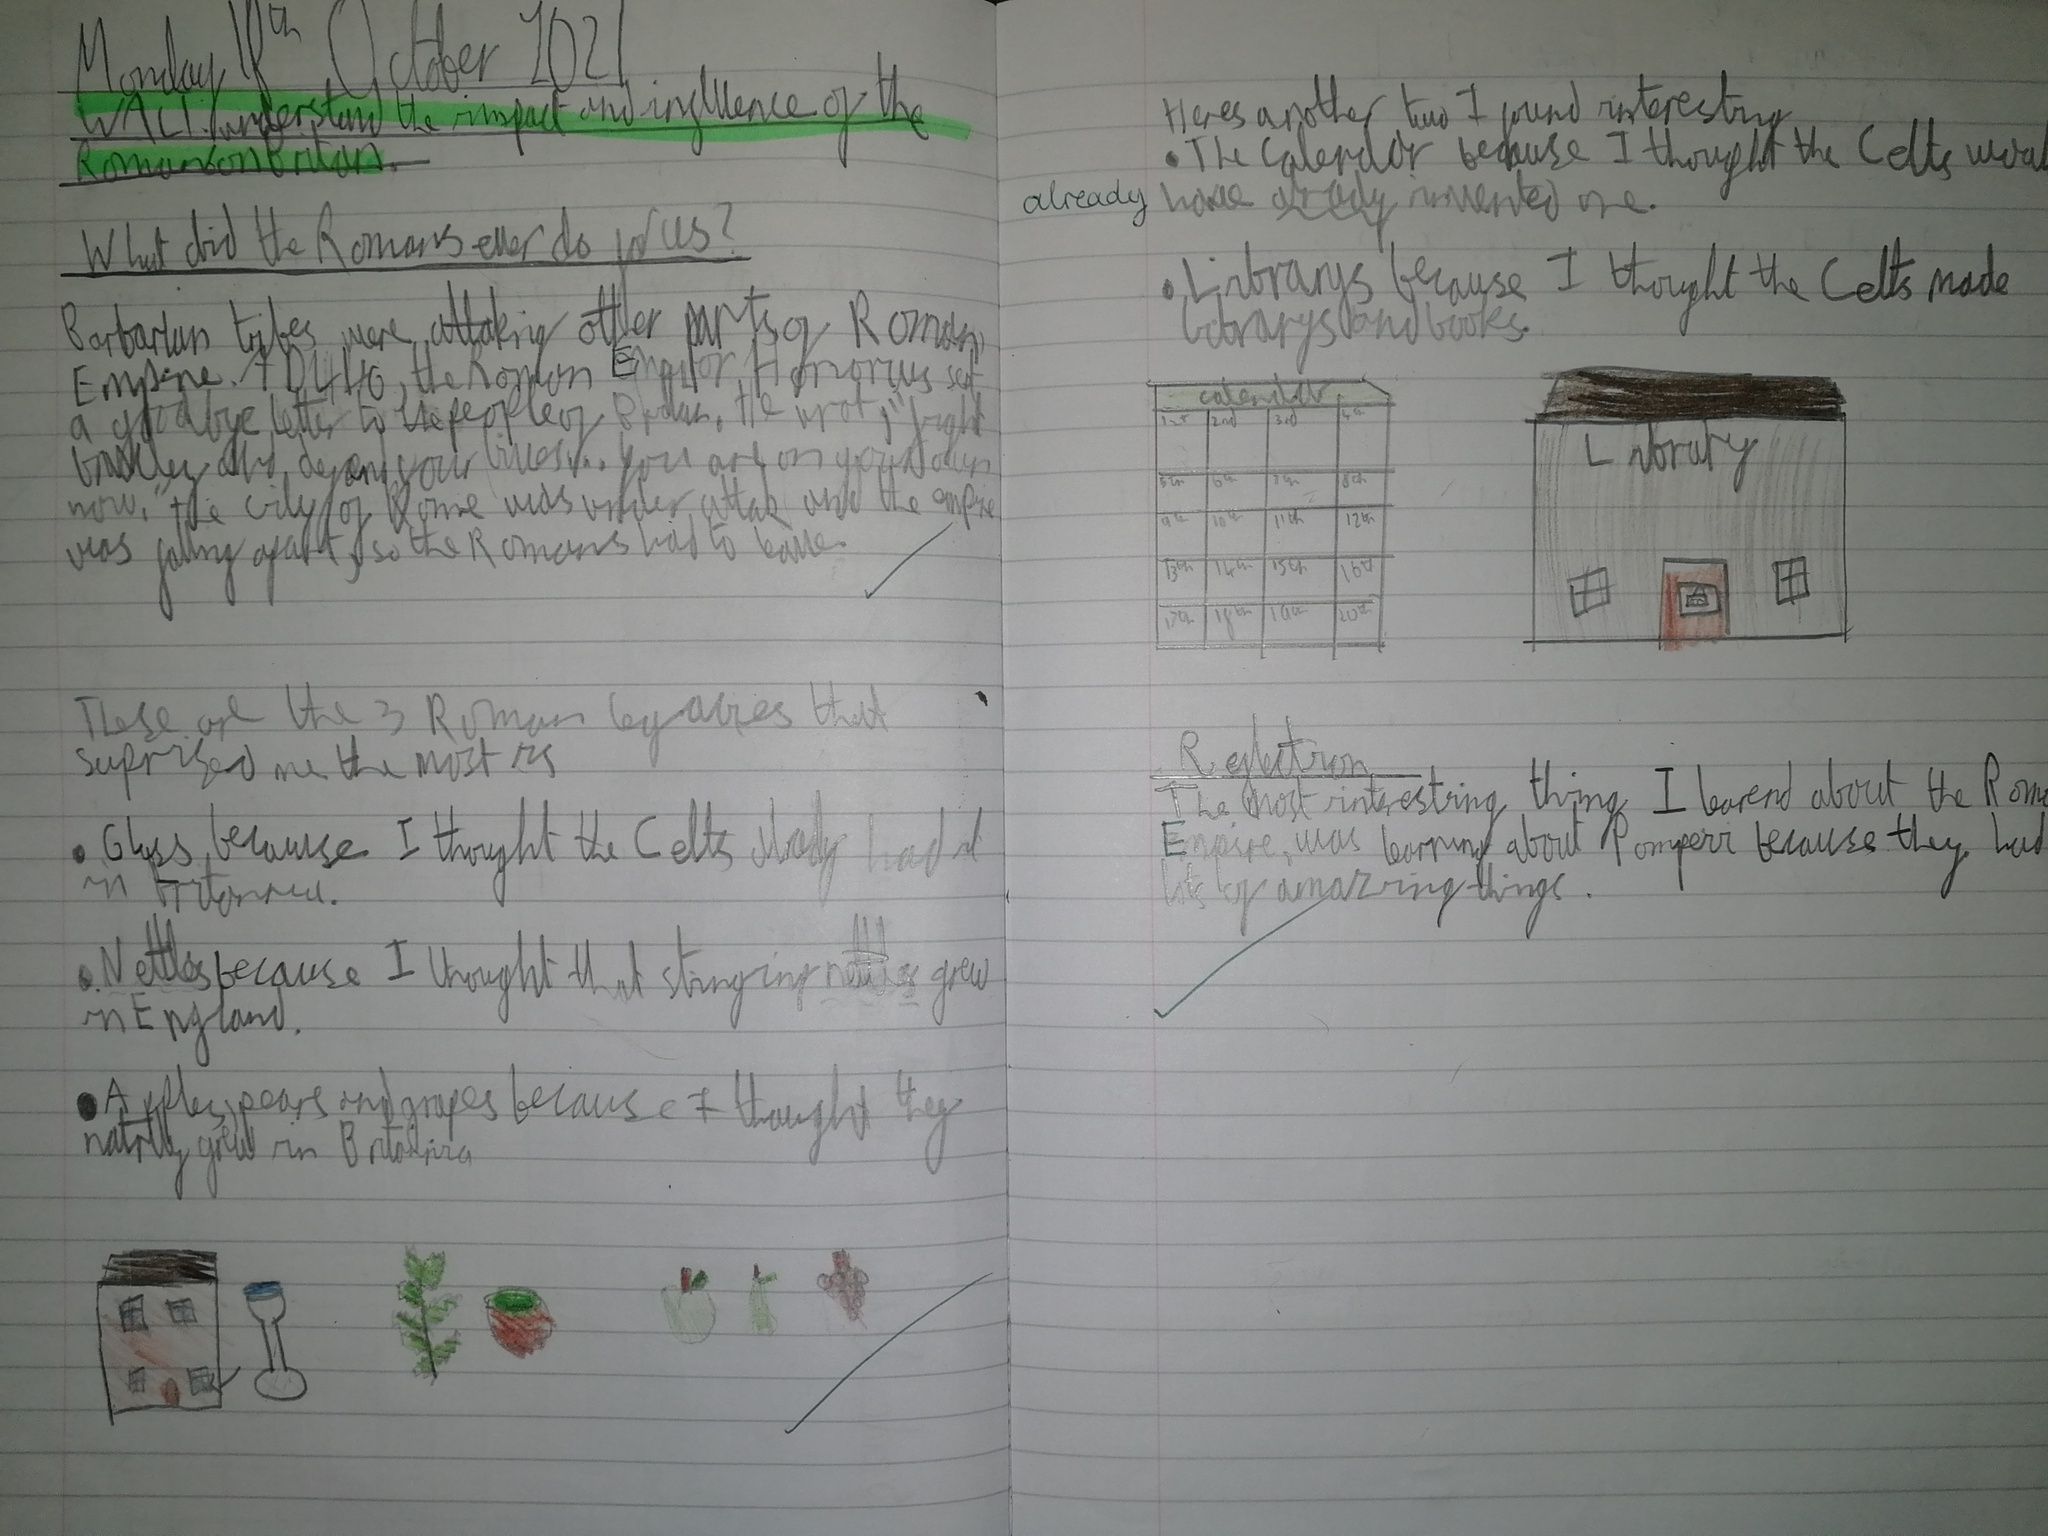 Monday 18th October 2021
WALT: understand the impact and influence of the
Romans on Britain.
What did the Romans ever do for us?
Barbarian tribes were attaking other parts of Roman
Empire. AD410, the Roman Emperor Honorius sent
a goodbye letter to the people of Britain. He wrote, "fight
bravley and defend your lives... you are on your own
now." The city of Rome was under attak and the empire
was falling apart, so the Romans had to leave.
These are the 3 Roman legacies that
suprised me the most is
• Glass because I thought the Celts already had it
in Britannia.
• Nettles because I thought that stinging nettles grew
in England.
• Apples, pears and grapes because I thought they
natrly grew in Britannia
Heres another two I found interesting
• The Calendar because I thought the Celts would
already have already invented one.
• Librarys because I thought the Celts made
librarys and books.
calendar
1st 2nd 3rd 4th
5th 6th 7th 8th
9th 10th 11th 12th
13th 14th 15th 16th
17th 18th 19th 20th
Library
Reflection
The most interesting thing I learend about the Roma
Empire, was learning about Pompeii because they had
lots of amazing things.